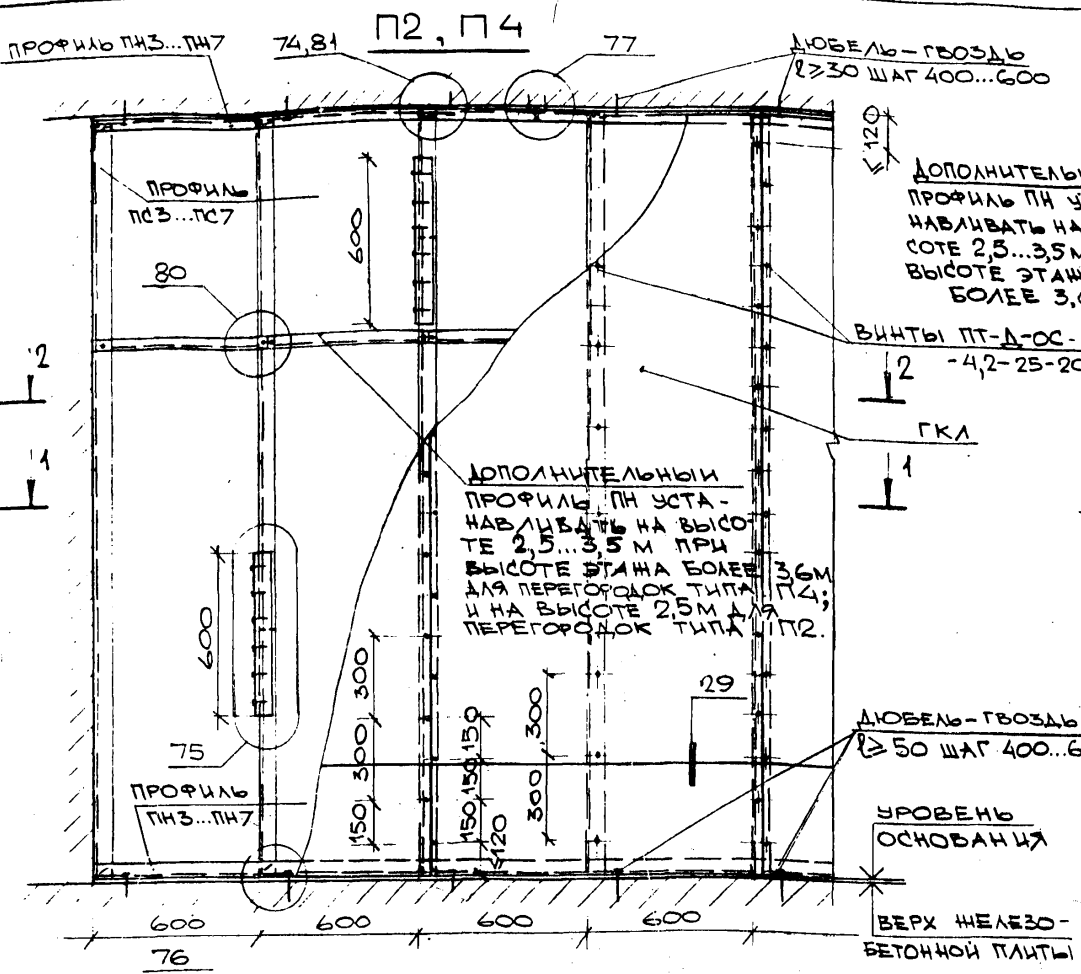 П2, П4
ПРОФИЛЬ ПН3...ПН7
74,81
77
ДЮБЕЛЬ-ГВОЗДЬ
ℓ≥30 ШАГ 400...600
≤120
ПРОФИЛЬ
ПС3...ПС7
600
ПРОФИЛЬ ПН
НАВЛИВАТЬ НА
СОТЕ 2,5...3,5М
ВЫСОТЕ
БОЛЕЕ
80
ВИНТЫ ПТ-Д-ОС-
-4,2-25-20
2
2
ГКЛ
1
1
ДОПОЛНИТЕЛЬНЫЙ
ПРОФИЛЬ ПН УСТА-
НАВЛИВАТЬ НА ВЫСО-
ТЕ 2,5...3,5 М ПРИ
ВЫСОТЕ ЭТАЖА БОЛЕЕ 3,6М
ДЛЯ ПЕРЕГОРОДОК ТИПА П4;
И НА ВЫСОТЕ 2,5М ДЛЯ
ПЕРЕГОРОДОК ТИПА П2.
600
300
300
150
150
150
150
≤120
300
300
29
75
ДЮБЕЛЬ-ГВОЗДЬ
ℓ≥50 ШАГ 400...6
ПРОФИЛЬ
ПН3...ПН7
УРОВЕНЬ
ОСНОВАНИЯ
600
600
600
600
ВЕРХ ЖЕЛЕЗО-
БЕТОННОЙ ПЛИТЫ
76